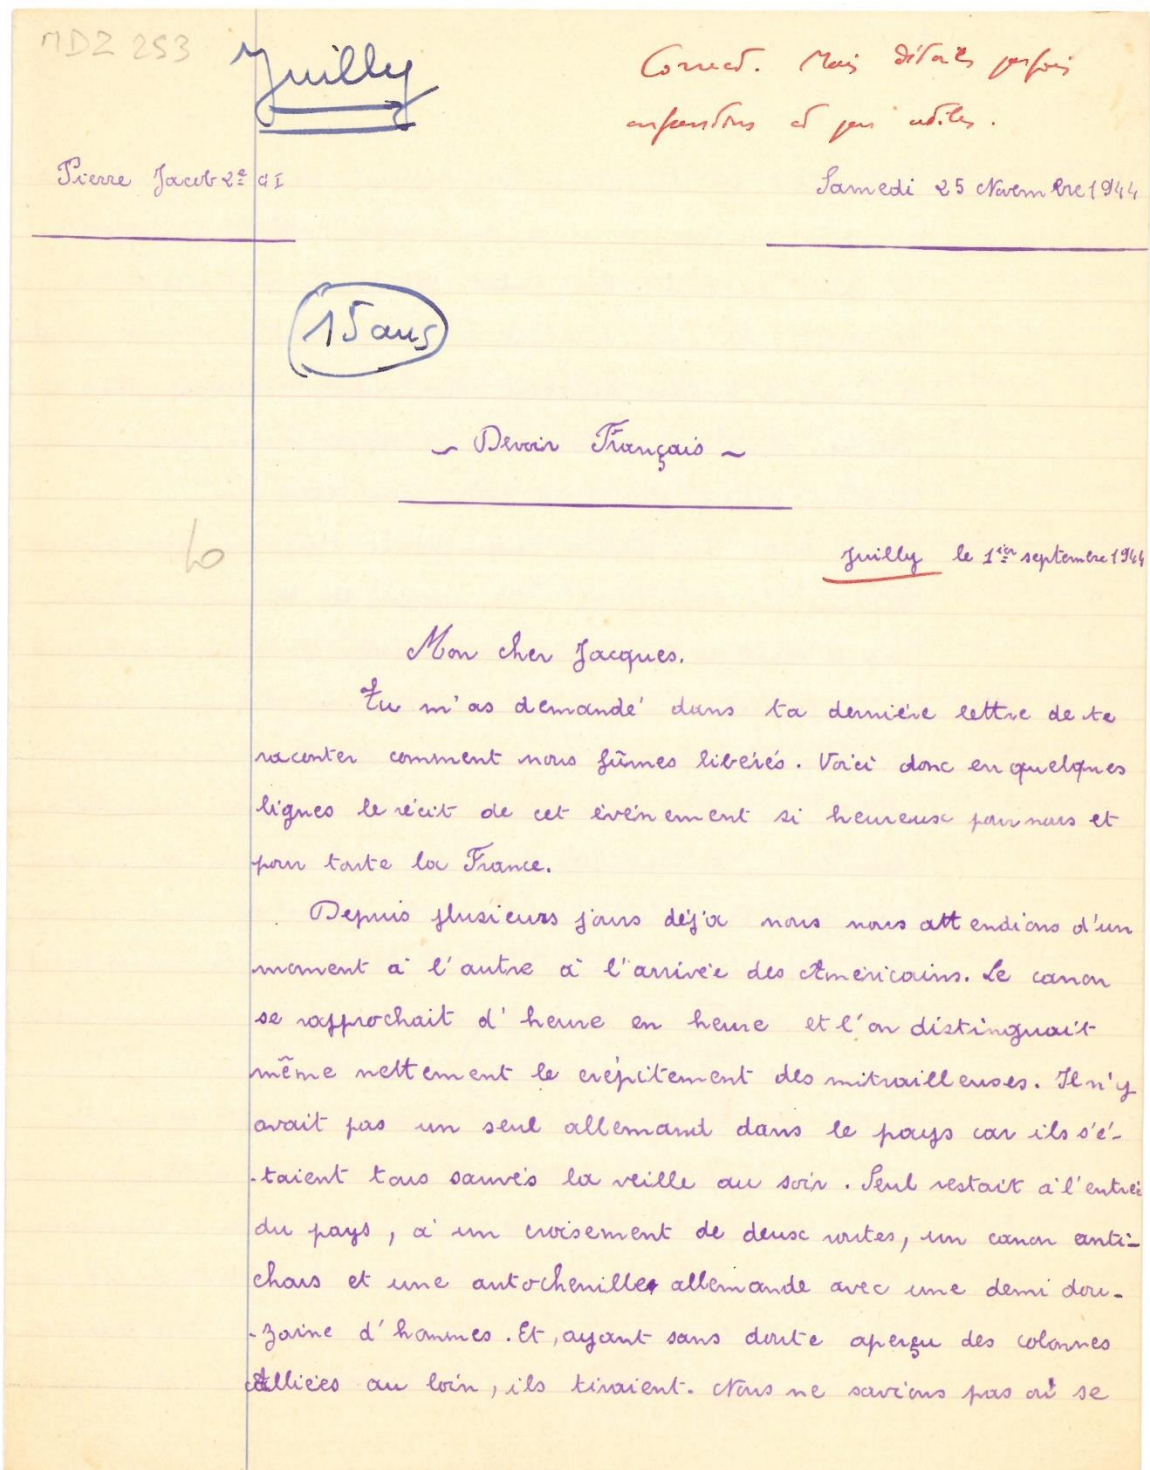 MDZ 253
Juilly
Correct. Mais détails parfois
enfantins et peu utiles.
Pierre Jacob 2e
Samedi 25 Novembre 1944
15 ans
~ Devoir Français ~
Juilly le 1ier septembre 1944
Mon cher Jacques.
Tu m'as demandé dans ta dernière lettre de te
raconter comment nous fûmes libérés. Voici donc en quelques
lignes le récit de cet évènement si heureux pour nous et
pour toute la France.
Depuis plusieurs jours déjà nous nous attendions d'un
moment à l'autre à l'arrivée des Américains. Le canon
se rapprochait d'heure en heure et l'on distinguait
même nettement le crépitement des mitrailleuses. Il n'y
avait pas un seul allemand dans le pays car ils s'é-
-taient tous sauvés la veille au soir. Seul restait à l'entrée
du pays, à un croisement de deux routes, un canon anti-
chars et une autochenille allemande avec une demi dou-
-zaine d'hommes. Et, ayant sans doute aperçu des colonnes
Alliées au loin, ils tiraient. Nous ne savions pas où se